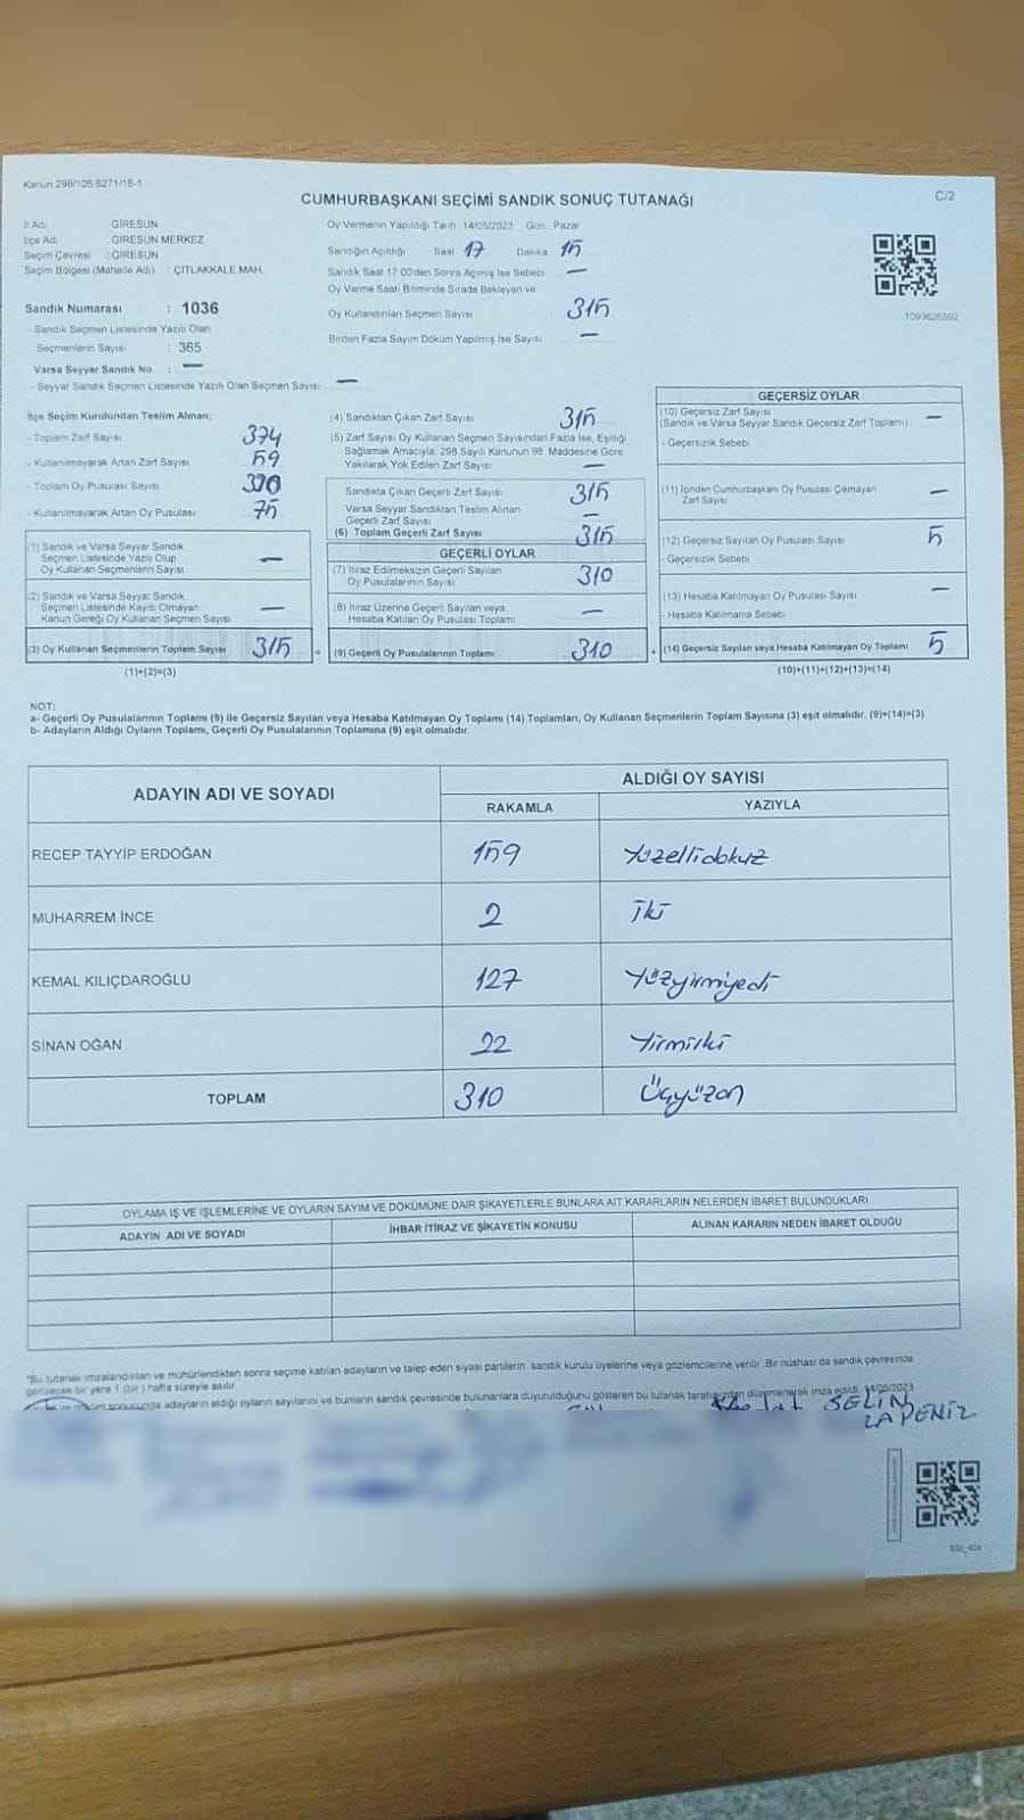 Kanun 298/105 6271/18-1
CUMHURBAŞKANI SEÇİMİ SANDIK SONUÇ TUTANAĞI
C/2
İl Adı : GİRESUN
İlçe Adı : GİRESUN MERKEZ
Seçim Çevresi : GİRESUN
Seçim Bölgesi (Mahalle Adı) : ÇITLAKKALE MAH.
Sandık Numarası : 1036
- Sandık Seçmen Listesinde Yazılı Olan
Seçmenlerin Sayısı : 365
Varsa Seyyar Sandık No : —
- Seyyar Sandık Seçmen Listesinde Yazılı Olan Seçmen Sayısı —
Oy Vermenin Yapıldığı Tarih : 14/05/2023 Gün : Pazar
Sandığın Açıldığı Saat 17 Dakika 15
Sandık Saat 17:00'den Sonra Açılmış İse Sebebi —
Oy Verme Saati Bitiminde Sırada Bekleyen ve
Oy Kullandırılan Seçmen Sayısı : 315
Birden Fazla Sayım Döküm Yapılmış İse Sayısı —
1093626592
İlçe Seçim Kurulundan Teslim Alınan;
- Toplam Zarf Sayısı 374
- Kullanılmayarak Artan Zarf Sayısı 59
- Toplam Oy Pusulası Sayısı
- Kullanılmayarak Artan Oy Pusulası 75
(1) Sandık ve Varsa Seyyar Sandık
Seçmen Listesinde Yazılı Olup
Oy Kullanan Seçmenlerin Sayısı —
(2) Sandık ve Varsa Seyyar Sandık
Seçmen Listesinde Kayıtlı Olmayan
Kanun Gereği Oy Kullanan Seçmen Sayısı —
(3) Oy Kullanan Seçmenlerin Toplam Sayısı 315
(1)+(2)=(3)
(4) Sandıktan Çıkan Zarf Sayısı 315
(5) Zarf Sayısı Oy Kullanan Seçmen Sayısından Fazla İse, Eşitliği
Sağlamak Amacıyla; 298 Sayılı Kanunun 98. Maddesine Göre
Yakılarak Yok Edilen Zarf Sayısı —
Sandıkta Çıkan Geçerli Zarf Sayısı 315
Varsa Seyyar Sandıktan Teslim Alınan
Geçerli Zarf Sayısı —
(6) Toplam Geçerli Zarf Sayısı 315
GEÇERLİ OYLAR
(7) İtiraz Edilmeksizin Geçerli Sayılan
Oy Pusulalarının Sayısı 310
(8) İtiraz Üzerine Geçerli Sayılan veya
Hesaba Katılan Oy Pusulası Toplamı —
= (9) Geçerli Oy Pusulalarının Toplamı 310
GEÇERSİZ OYLAR
(10) Geçersiz Zarf Sayısı
(Sandık ve Varsa Seyyar Sandık Geçersiz Zarf Toplamı) —
- Geçersizlik Sebebi
(11) İçinden Cumhurbaşkanı Oy Pusulası Çıkmayan
Zarf Sayısı —
(12) Geçersiz Sayılan Oy Pusulası Sayısı 5
- Geçersizlik Sebebi
(13) Hesaba Katılmayan Oy Pusulası Sayısı —
- Hesaba Katılmama Sebebi
+ (14) Geçersiz Sayılan veya Hesaba Katılmayan Oy Toplamı 5
(10)+(11)+(12)+(13)=(14)
NOT:
a- Geçerli Oy Pusulalarının Toplamı (9) ile Geçersiz Sayılan veya Hesaba Katılmayan Oy Toplamı (14) Toplamları, Oy Kullanan Seçmenlerin Toplam Sayısına (3) eşit olmalıdır. (9)+(14)=(3)
b- Adayların Aldığı Oyların Toplamı, Geçerli Oy Pusulalarının Toplamına (9) eşit olmalıdır.
ADAYIN ADI VE SOYADI
ALDIĞI OY SAYISI
RAKAMLA YAZIYLA
RECEP TAYYİP ERDOĞAN 159 Yüzellidokuz
MUHARREM İNCE 2 İki
KEMAL KILIÇDAROĞLU 127 Yüzyirmiyedi
SİNAN OĞAN 22 Yirmiiki
TOPLAM 310 Üçyüzon
OYLAMA İŞ VE İŞLEMLERİNE VE OYLARIN SAYIM VE DÖKÜMÜNE DAİR ŞİKAYETLERLE BUNLARA AİT KARARLARIN NELERDEN İBARET BULUNDUKLARI
ADAYIN ADI VE SOYADI İHBAR İTİRAZ VE ŞİKAYETİN KONUSU ALINAN KARARIN NEDEN İBARET OLDUĞU
"Bu tutanak imzalandıktan ve mühürlendikten sonra seçime katılan adayların ve talep eden siyasi partilerin sandık kurulu üyelerine veya gözlemcilerine verilir. Bir nüshası da sandık çevresinde
görülecek bir yere 1 (bir) hafta süreyle asılır.
adayların aldığı oyların sayılarını ve bunların sandık çevresinde bulunanlara duyurulduğunu gösteren bu tutanak tarafımızdan düzenlenerek imza edildi. 14/05/2023
SELİN